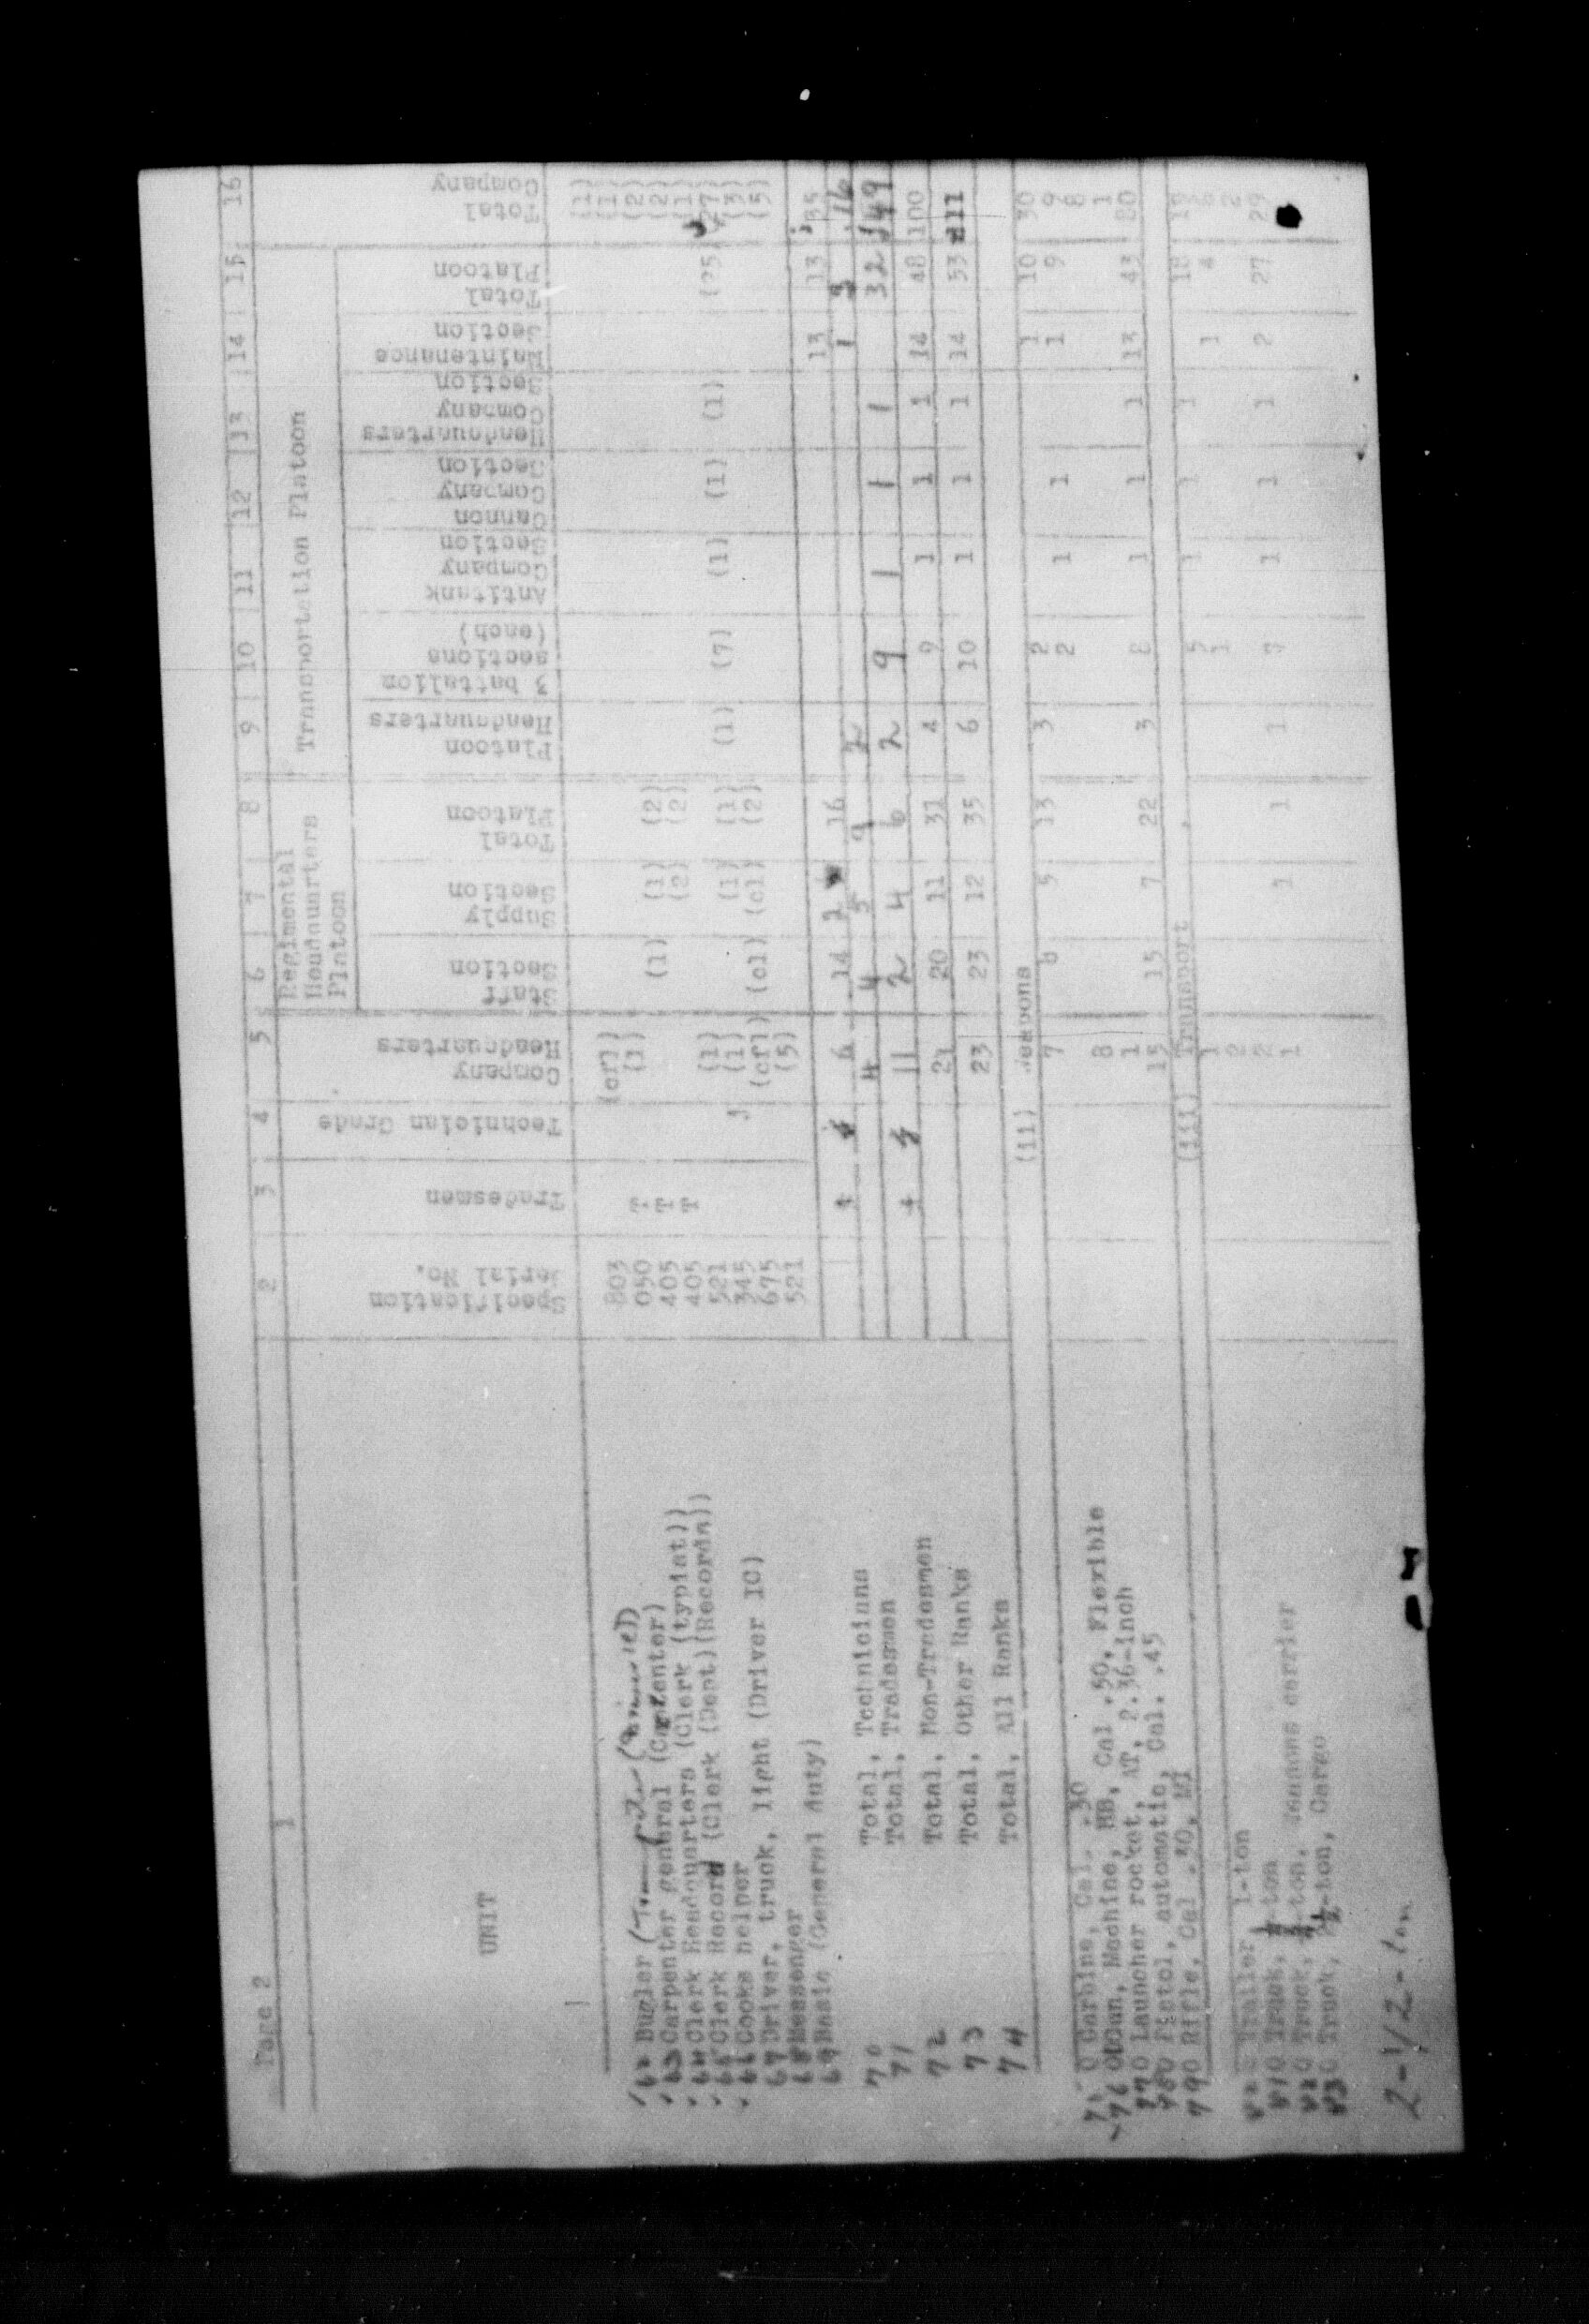 Page 2
1 2 3 4 5 6 7 8 9 10 11 12 13 14 15 16
Regimental Headquarters Platoon
Transportation Platoon
UNIT
Specification Serial No.
Tradesmen
Technician Grade
Company Headquarters
Staff Section
Supply Section
Total Platoon
Platoon Headquarters
3 battalion sections (each)
Antitank Company Section
Cannon Company Section
Headquarters Company Section
Maintenance Section
Total Platoon
Total Company
62 Bugler 803 (cf1) (1)
63 Carpenter general (Carpenter) 050 T (1) (1)
64 Clerk Headquarters (Clerk (typist)) 405 T (1) (1) (2) (2)
65 Clerk Record (Clerk (Dept)(Records)) 405 T (2) (2) (2)
66 Cooks helper 521 (1) (1)
67 Driver, truck, light (Driver IC) 345 5 (1) (1) (1) (1) (7) (1) (1) (1) (25) (27)
68 Messenger 675 (cf1) (c1) (c1) (2) (3)
69 Basic (General duty) 521 (5) (5)
70 Total, Technicians 6 14 2 16 13 13 35
71 Total, Tradesmen 4 4 5 9 2 1 3 16
72 Total, Non-Tradesmen 11 2 4 6 2 9 1 1 1 32 49
73 Total, Other Ranks 21 20 11 31 4 9 1 1 1 14 48 100
74 Total, All Ranks 23 23 12 35 6 10 1 1 1 14 53 111
(ii) Weapons
0 Carbine, Cal. .30 7 8 5 13 3 2 1 10 30
76 0 Gun, Machine, HB, Cal .50, Flexible 2 1 1 1 9 9
770 Launcher rocket, AT, 2.36-inch 8 8
780 Pistol, automatic, Cal. .45 1 1
790 Rifle, Cal .30, M1 15 15 7 22 3 8 1 1 1 13 43 80
(iii) Transport
Trailer 1-ton 1 5 1 1 1 18 19
810 Truck, ¼-ton 2 1 1 4
820 Truck, ¾-ton, Weapons carrier 2 2
830 Truck, 2½-ton, Cargo 1 1 1 1 1 1 1 2 27 29
2-1/2-ton